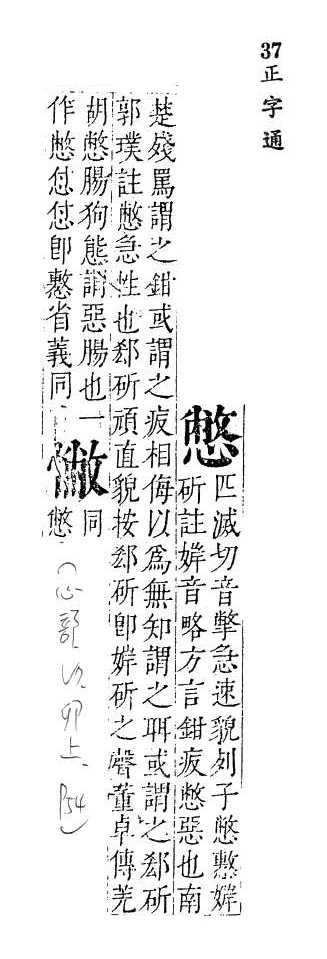 37
正字通
憋
匹滅切音撆急速貌列子憋懯婩
斫註婩音略方言鉗疲憋惡也南
楚罵謂之鉗或謂之疲相侮以爲無知謂之聑或謂之郄斫
郭璞註憋急性也郄斫頑直貌按郄斫卽婩斫之聲董卓傳羌
胡憋腸狗態謂惡腸也一
作憋怤怤卽懯省義同
㦌
同
憋
(心部卯上、P54)